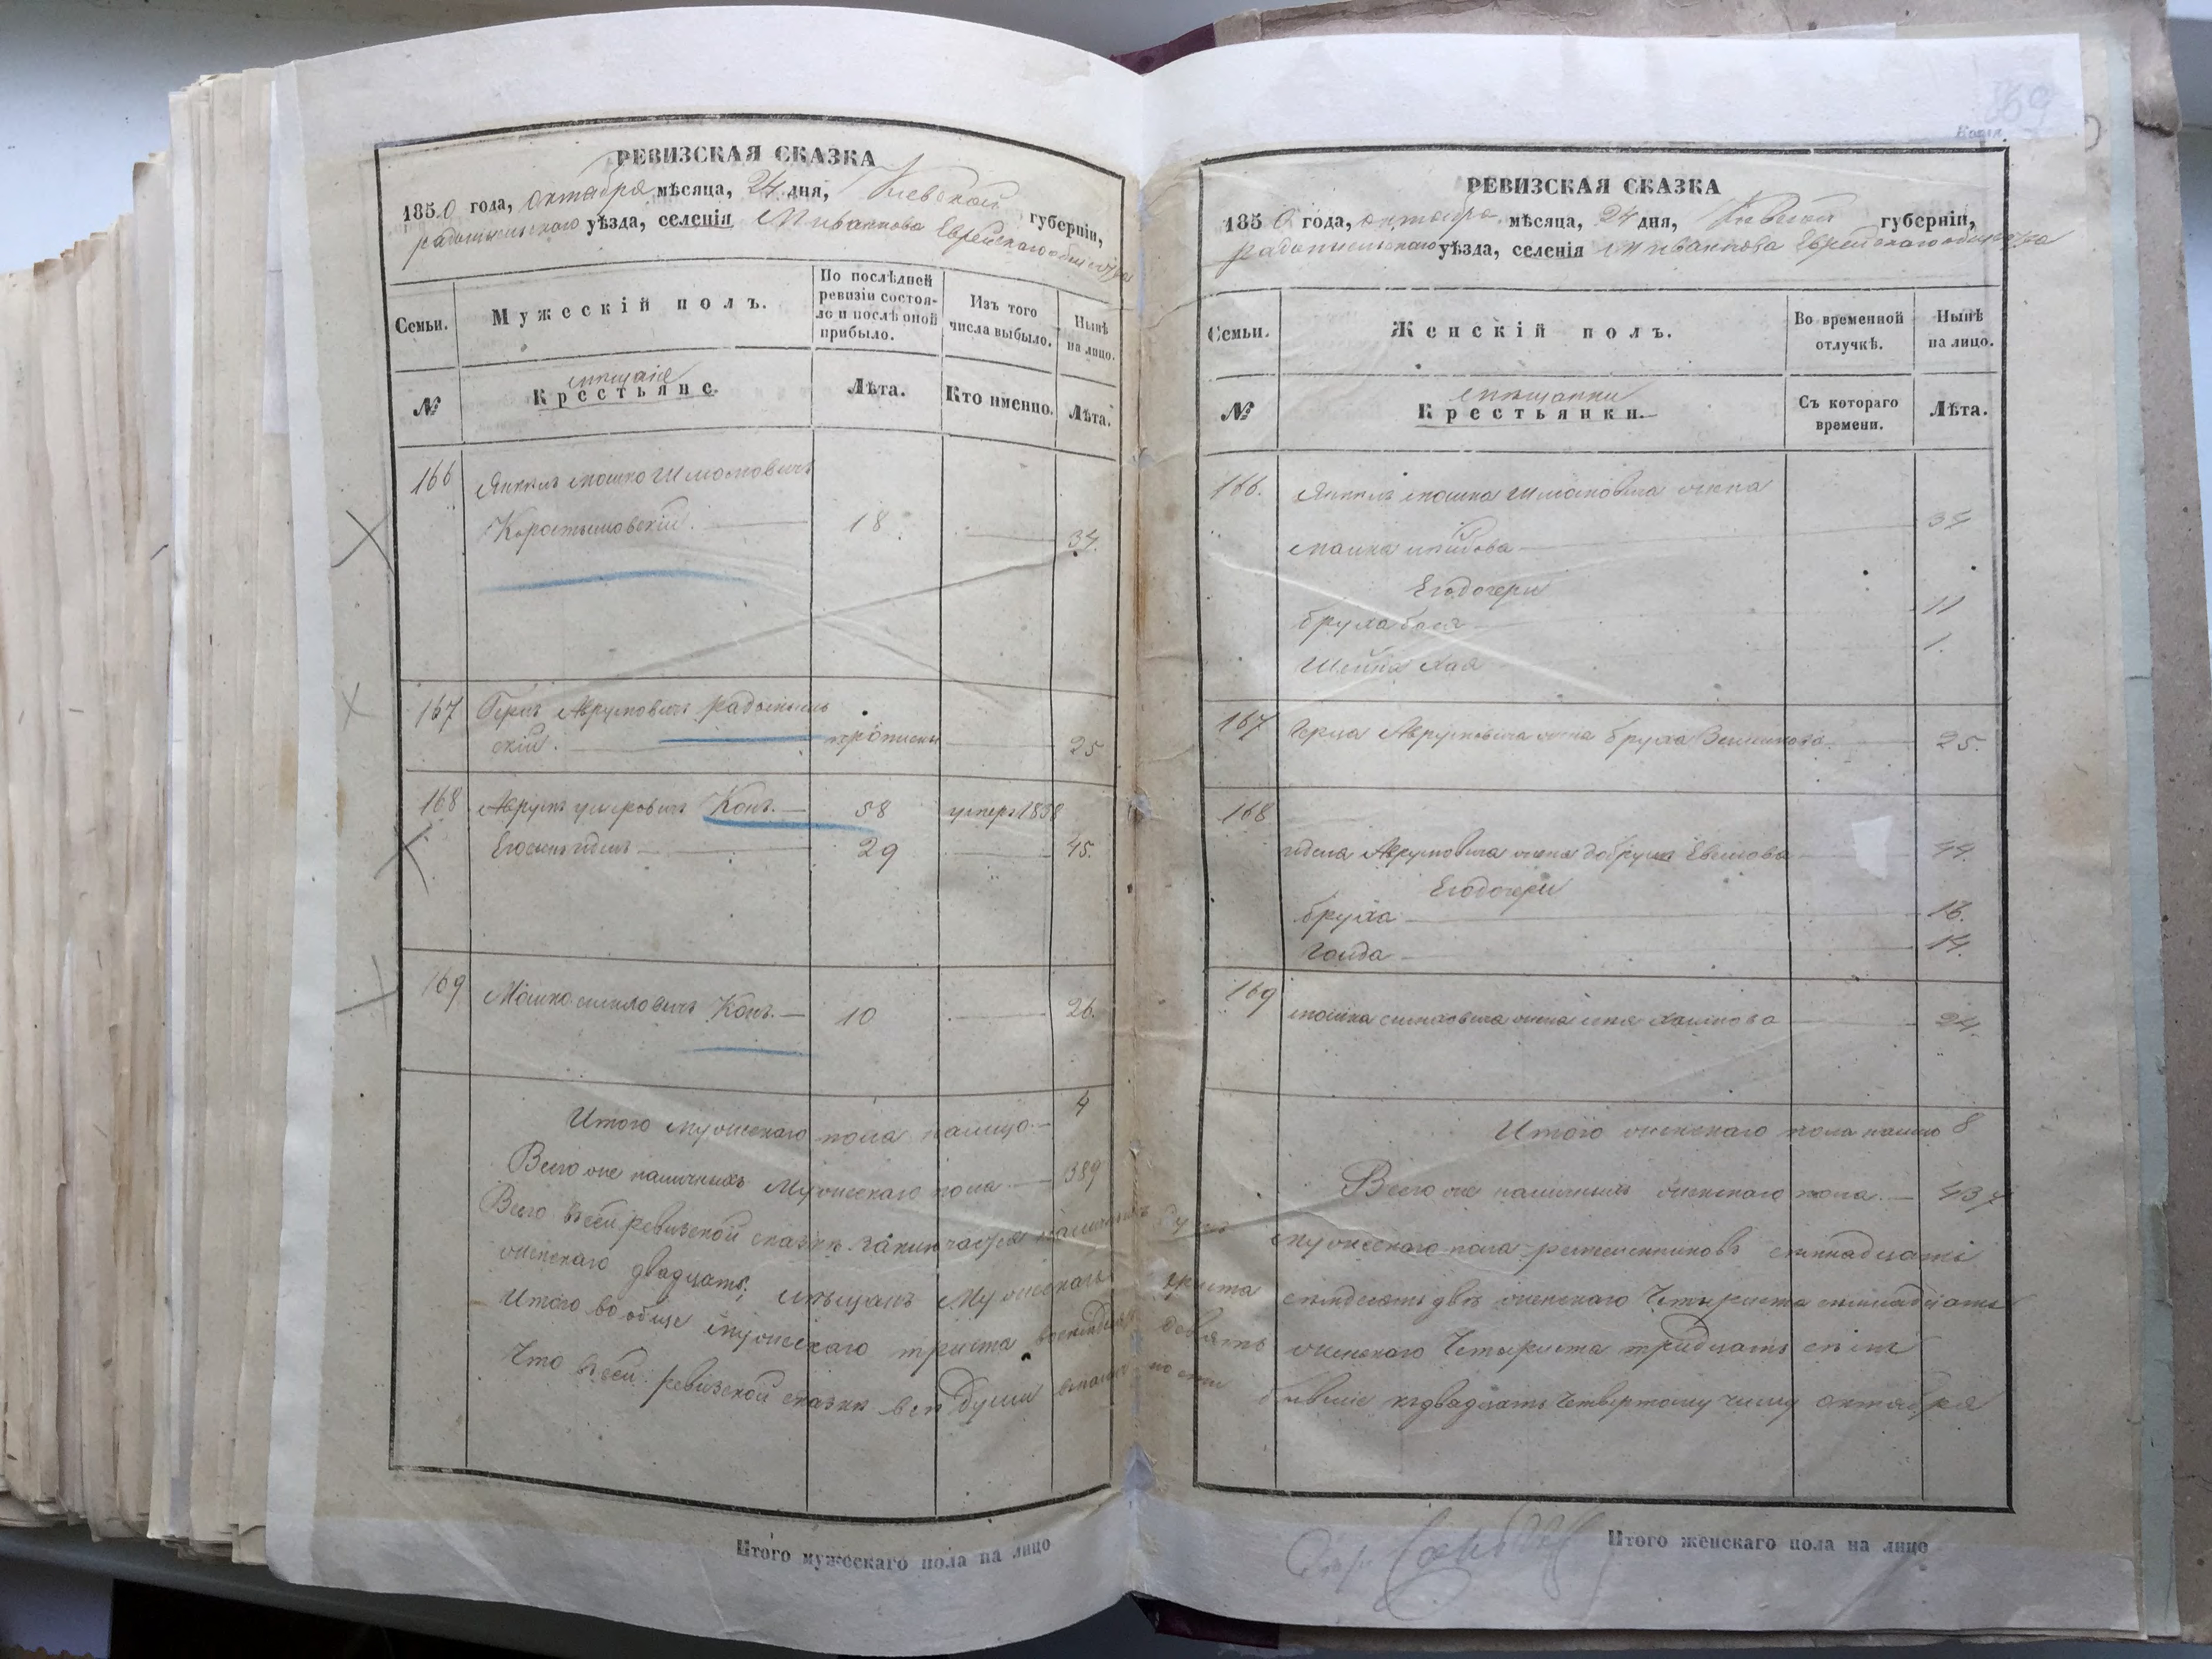 РЕВИЗСКАЯ СКАЗКА
1850 года, октября мѣсяца, 24 дня, Киевской губерніи,
радомысльскаго уѣзда, селенія м. Иванкова Еврейскаго общества
Семьи.
Мужескій полъ.
По послѣдней ревизіи состояло и послѣ оной прибыло.
Изъ того числа выбыло.
Нынѣ на лицо.
№
мѣщане
Крестьяне.
Лѣта.
Кто именно.
Лѣта.
166 Янкель Мошко Шмойловичъ
Коростышовскій. 18 34.
167 Герш Аврумовичъ радомысль
скій. прописны 25
168 Аврумъ Конъ. 58 умеръ 1838
Его сынъ Идель 29 45.
169 Мошко Конъ. 10 26.
Итого мужескаго пола налицо 4
Всего же наличныхъ Мужескаго пола 389
Всего в сей ревизской сказкѣ заключается наличныхъ душъ
женскаго двадцать; мѣщанъ Мужескаго триста
Итого вообще мужескаго триста восемьдесятъ девять
Что в сей ревизской сказкѣ все души
Итого мужескаго пола на лицо
869
РЕВИЗСКАЯ СКАЗКА
1850 года, октября мѣсяца, 24 дня, Киевской губерніи,
радомысльскаго уѣзда, селенія м. Иванкова Еврейскаго общества
Семьи.
Женскій полъ.
Во временной отлучкѣ.
Нынѣ на лицо.
№
мѣщанки
Крестьянки.
Съ котораго времени.
Лѣта.
166. Янкеля Мошка Шмойловича жена
34
Его дочери
бруха бася 11
Шейна Хая 1.
167 Герша Аврумовича жена бруха 25.
168
Иделя Аврумовича жена добруша 44.
Его дочери
бруха 16.
голда 14.
169
Мошка жена Хаимова 24.
Итого женскаго пола налицо 8
Всего же наличныхъ женскаго пола. 437
мужескаго пола ремесленниковъ семнадцать
семдесятъ двѣ женскаго Четыриста семнадцать
женскаго Четыриста тридцать семь
бывшие къ двадцать четвертому числу октября
Итого женскаго пола на лицо